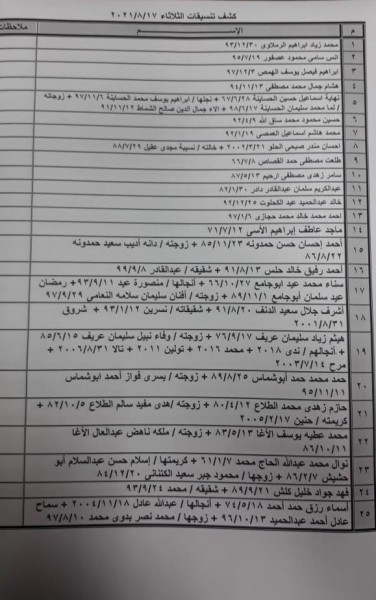 كشف تنسيقات الثلاثاء ٢٠٢١/٨/١٧
م الإســـــم ملاحظات
١ محمد زياد ابراهيم الرملاوي ٩٣/١٢/٣٠
٢ انس سامي محمود عصفور ٩٥/٧/١٩
٣ ابراهيم فيصل يوسف الهمص ٩٧/١٢/٣
٤ هشام جمال محمد مصطفى ٩٤/١١/١٣
٥ نهاية اسماعيل حسين الحساينة ٦٧/٦/٢٨ + نجلها / ابراهيم يوسف محمد الحساينة ٩٧/١١/٦ + زوجاته
/ لما محمد سليمان الحساينة ٩٧/٨/١٦ + الاء جمال الدين صالح الشماط ٩١/١١/٢
٦ حسين محمود محمد ساق الله ٩٢/٤/٩
٧ محمد هاشم اسماعيل العمصي ٩٢/١/١٩
٨ احسان منذر صبحي الحلو ٢٠٠٢/٣/٢١ + خالته / نسيبة مجدي عقيل ٨٨/٧/٢٩
٩ طلعت مصطفى حمد القصاص ٦٦/٧/٨
١٠ سامر زهدى مصطفى ارحيم ٨٧/٥/١٣
١١ عبدالكريم سلمان عبدالقادر دادر ٨٢/١/٣٠
١٢ خالد عبدالحميد عبد الكحلوت ٩٢/١٢/٢٥
١٣ احمد محمد خالد محمد حجازي ٩٧/١/٦
١٤ ماجد عاطف إبراهيم الآسى ٧١/٧/١٢
١٥ أحمد إحسان حسن حمدونه ٨٥/١١/٢٣ + زوجته / دانه أديب سعيد حمدونه
٨٦/٨/٢٢
١٦ أحمد رفيق خالد حلس ٩١/٨/١٣ + شقيقه / عبدالقادر ٩٩/٩/٨
١٧ سناء محمد عيد ابوجامع ٦٦/١٠/٢٧ + أنجالها / منصورة عيد ٩٣/٩/١١ + رمضان
عيد سلمان أبوجامع ٨٩/١١/١ + زوجته / أفنان سليمان سلامه النعامى ٩٧/٩/٢٩
١٨ أشرف جلال سعيد الدلفه ٩١/٨/٢٠ + أشقائه / نسرين ٩٣/١/١٢ + شروق
٢٠٠١/٨/٣١
١٩ هيثم زياد سليمان عريف ٧٦/٩/١٧ + زوجته / وفاء نبيل سليمان عريف ٨٥/٦/١٥
+ أنجالهم / ندى ٢٠١٨ + محمد ٢٠١٦ + تولين ٢٠١١ + تالا ٢٠٠٦/٨/٣١ +
مرح ٢٠٠٣/٧/١٤
٢٠ حمد محمد حمد أبوشماس ٨٩/٨/٢٥ + زوجته / يسرى فواز أحمد ابوشماس
٩٥/١١/١١
٢١ حازم زهدى محمد الطلاع ٨٠/٤/١٢ + زوجته / هدى مفيد سالم الطلاع ٨٢/١٠/٥ +
كريمته / حنين ٢٠٠٥/٢/١٧
٢٢ محمد عطيه يوسف الأغا ٨٣/٥/١٣ + زوجته / ملكه ناهض عبدالعال الأغا
٨٦/١٠/١١
٢٣ نوال محمد عبدالله الحاج محمد ٦١/١/٧ + كريمتها / إسلام حسن عبدالسلام أبو
حشيش ٨٦/٢/٧ + زوجها / محمود جبر سعيد الكتنانى ٨٤/١٢/٢٠
٢٤ فهد جواد خليل كلش ٨٩/٩/٢١ + شقيقه / محمد ٩٣/٩/٢٤
٢٥ أسماء رزق حمد أحمد ٧٤/٥/١٨ + أنجالها / عبدالله عادل ٢٠٠٤/١١/١٨ + سماح
عادل أحمد عبدالحميد ٩٦/١٠/١٣ + زوجها / محمد نصر بدوى محمد ٩٧/٨/١٠